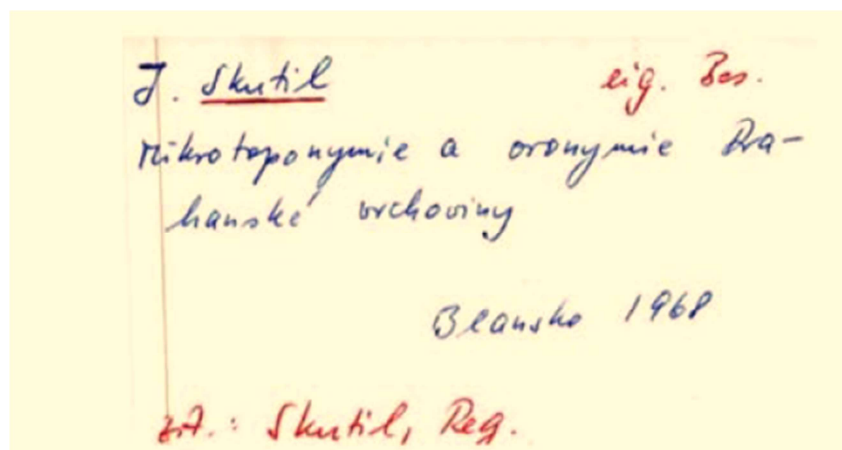 J. Skutil eig. Bes.
Mikrotoponymie a oronymie Dra-
hanské vrchoviny
Blansko 1968
zit.: Skutil, Reg.